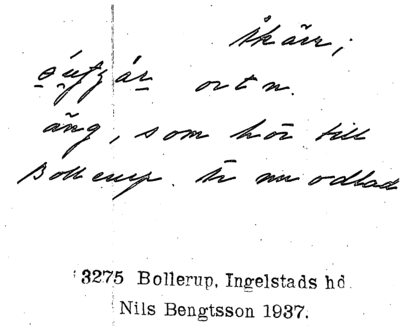 skärr;
ort n.
äng, som hör till
Bollerup. Är nu odlad
3275 Bollerup, Ingelstads hd.
Nils Bengtsson 1937.